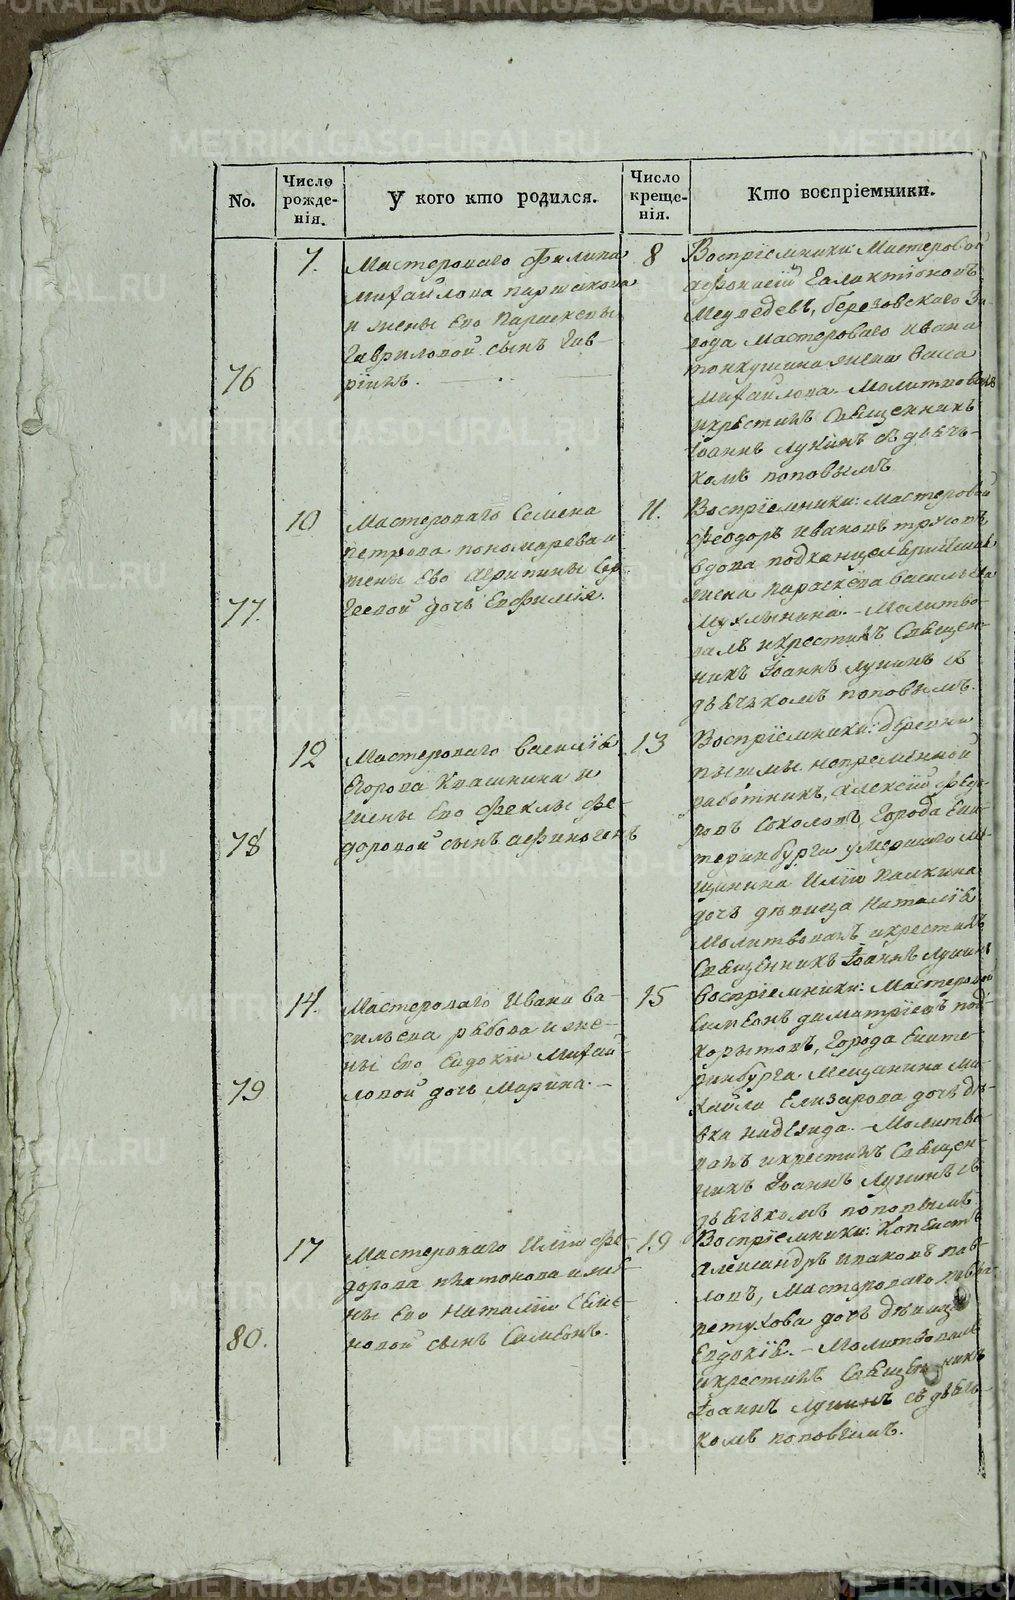 No.
Число рожденія.
У кого кто родился.
Число крещенія.
Кто воспріемники.
76
7.
Мастероваго Филипа
Михайлова
и жены Его Параскевы
Гавриловой сынъ Гав-
ріилъ.
8
Воспріемники: Мастеровой
Афонасій Галактіоновъ
Медведевъ, березовскаго За-
вода мастероваго Ивана
жена
Михайлова. Молитвовалъ
икрестилъ Священникъ
Іоаннъ Лунинъ съ дьяч-
комъ поповымъ.
77.
10
Мастероваго Семена
петрова пономарева и
жены Его Агрипины Сер-
геевой дочь Евфимія.
11.
Воспріемники: мастеровой
Феодоръ Ивановъ
вдова
жена параскева васильева
Мухлынина. Молитво-
валъ икрестилъ Священ-
никъ Іоаннъ Лунинъ съ
дьячкомъ поповымъ.
78
12
Мастероваго василья
Егорова Квашнина и
жены Его Феклы Фе-
доровой сынъ афиногенъ
13
Воспріемники: деревни
пышмы непременной
работникъ, алексій Федо-
ровъ Соколовъ, Города Ека-
теринбурга умершаго ме-
щанина Иліи палкина
дочь девица Наталія
Молитвовалъ икрестилъ
Священникъ Іоаннъ Лунинъ
79
14.
Мастероваго Ивана ва-
сильева рябова и же-
ны Его Евдокіи Михай-
ловой дочь Марина.
15
воспріемники: Мастеровой
Симеонъ димитріевъ под-
корытовъ, Города Екате-
ринбурга Мещанина Ми-
хайла Елизарова дочь де-
вка надежда. Молитво-
валъ икрестилъ Священ-
никъ Іоаннъ Лунинъ съ
дьячкомъ поповымъ
80.
17
Мастероваго Иліи Фе-
дорова платонова и же-
ны Его Наталіи Семе-
новой сынъ Симеонъ.
19
Воспріемники: Копеистъ
Александръ ивановъ пав-
ловъ, Мастероваго
петухова дочь девица
Евдокія. Молитвовалъ
икрестилъ Священникъ
Іоаннъ Лунинъ съ дьяч-
комъ поповымъ.